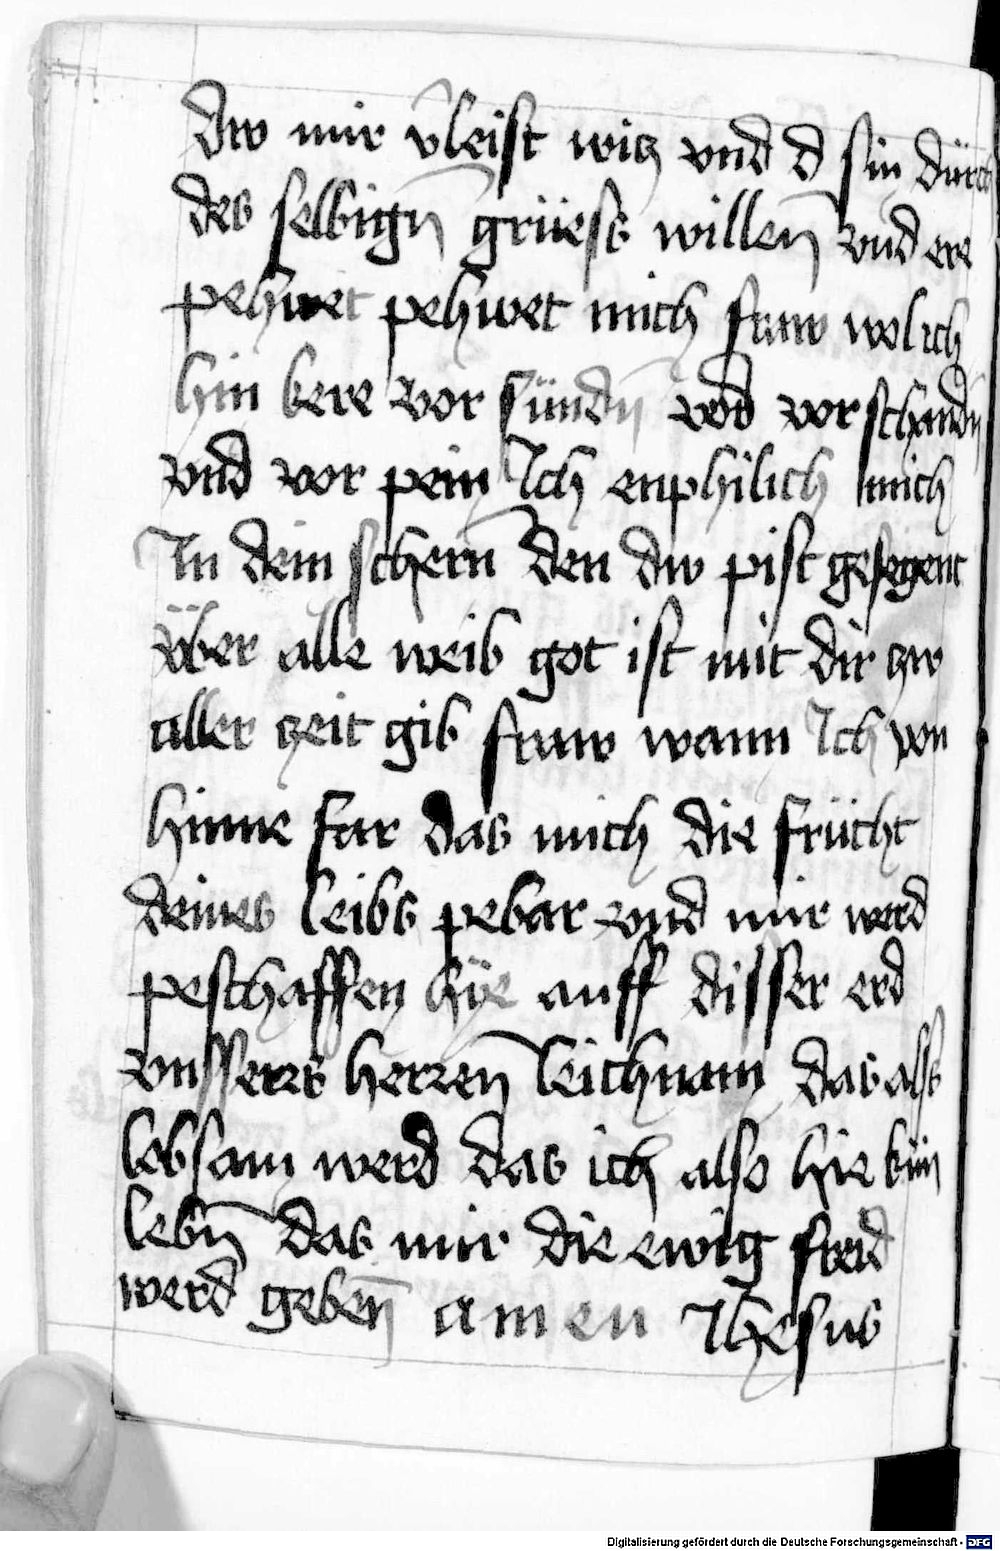 dw mir v̄leist witz vnd d sin dürch
des selbign̄ grüess willen̄ vnd ere
pehwet pehwet mich fraw wo ich
hin kere vor sündn̄ vnd vor schandn̄
vnd vor pein Ich enphilich mich
In dein scherm̄ den dw pist gesegent
über alle weib got ist mit dir zw
aller zeit gib fraw wann Ich von
hinne far das mich die frücht
deines leibs pebar vnd mir werd
peschaffen hÿe auff disser erd
vnsserrs herren̄ leichnam das alss
lobsam werd das ich also hie kün
lebn̄ das mir die ewig freid
werd geben̄ amen Ihesus
Digitalisierung gefördert durch die Deutsche Forschungsgemeinschaft - DFG